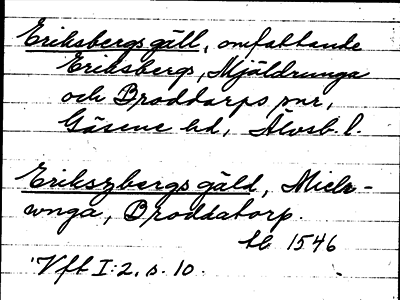 Eriksbergs gäll, omfattande
Eriksbergs, Mjäldrunga
och Broddarps snr,
Gäsene hd, Älvsb. l.
Erikszbergs gäld, Miels-
unga, Broddatorp.
1546
Vft I:2, s. 10.